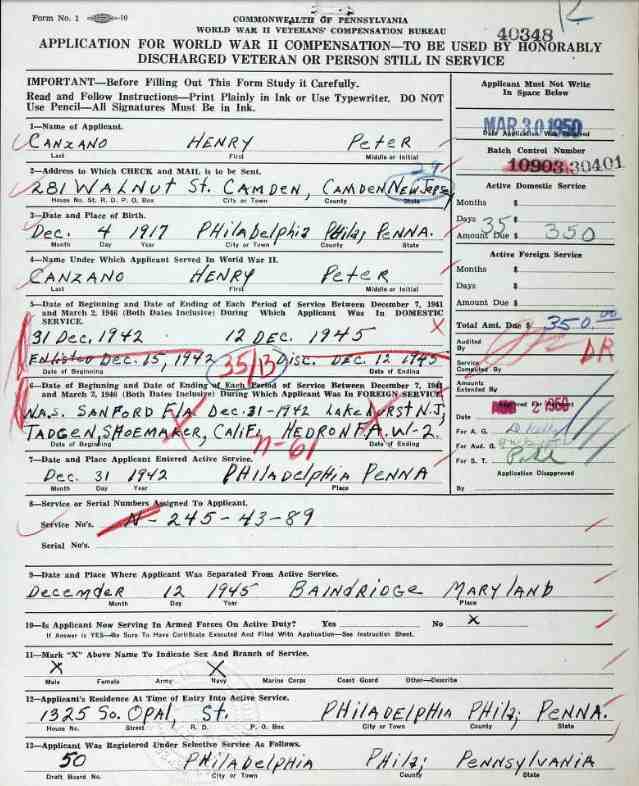 Form No. 1
COMMONWEALTH OF PENNSYLVANIA
WORLD WAR II VETERANS' COMPENSATION BUREAU
40348
APPLICATION FOR WORLD WAR II COMPENSATION—TO BE USED BY HONORABLY
DISCHARGED VETERAN OR PERSON STILL IN SERVICE
IMPORTANT—Before Filling Out This Form Study it Carefully.
Read and Follow Instructions—Print Plainly in Ink or Use Typewriter. DO NOT
Use Pencil—All Signatures Must Be in Ink.
Applicant Must Not Write
In Space Below
1—Name of Applicant.
CANZANO HENRY PeteR
Last First Middle or Initial
MAR 30 1950
Date Application Was Received
Batch Control Number
10903 30401
2—Address to Which CHECK and MAIL is to be Sent.
29
281 WALNUT St. CAMDEN, CAMDEN NEW JeRSey
House No. St. R. D. P. O. Box City or Town County State
Active Domestic Service
Months $
Days 35 $
Amount Due $ 350
3—Date and Place of Birth.
Dec. 4 1917 PHilAdelphia PHila; PeNNA.
Month Day Year City or Town County State
Active Foreign Service
Months $
Days $
Amount Due $
4—Name Under Which Applicant Served In World War II.
CANZANO HENRY PeteR
Last First Middle or Initial
5—Date of Beginning and Date of Ending of Each Period of Service Between December 7, 1941
and March 2, 1946 (Both Dates Inclusive) During Which Applicant Was In DOMESTIC
SERVICE.
31 Dec. 1942 12 DEC. 1945 X
ENlisted Dec. 15, 1942 35/13 Disc. Dec. 12 1945
Date of Beginning Date of Ending
Total Amt. Due $ 350.00
Audited
By
Service
Computed By DR
Amounts
Extended By
6—Date of Beginning and Date of Ending of Each Period of Service Between December 7, 1941
and March 2, 1946 (Both Dates Inclusive) During Which Applicant Was In FOREIGN SERVICE
N.A.S. SANFORD FlA. Dec. 31-1942 LakeHURST N.J,
TADCEN, SHOEMAKeR, CALIF. HEDRON F.A. W-2.
Date of Beginning Date of Ending
n-61
Approved For Payment
Date 2 1950
For A. G.
For Aud. G.
For S. T.
Application Disapproved
By
7—Date and Place Applicant Entered Active Service.
Dec. 31 1942 PHilAdelpHiA PeNNA
Month Day Year Place
8—Service or Serial Numbers Assigned To Applicant.
Service No's. N-245-43-89
Serial No's.
9—Date and Place Where Applicant Was Separated From Active Service.
DecemdeR 12 1945 BAINDRIDGe MARYlAND
Month Day Year Place
10—Is Applicant Now Serving In Armed Forces On Active Duty? Yes No X
If Answer is YES—Be Sure To Have Certificate Executed And Filed With Application—See Instruction Sheet.
11—Mark "X" Above Name To Indicate Sex And Branch of Service.
X X
Male Female Army Navy Marine Corps Coast Guard Other—Describe
12—Applicant's Residence At Time of Entry Into Active Service.
1325 So. OpAl, St. PHilAdelpHiA PHilA; PeNNA.
House No. Street R. D. P. O. Box City or Town County State
13—Applicant Was Registered Under Selective Service As Follows.
50 PHilAdelpHia PHila; PeNNSylvANiA
Draft Board No. City or Town County State